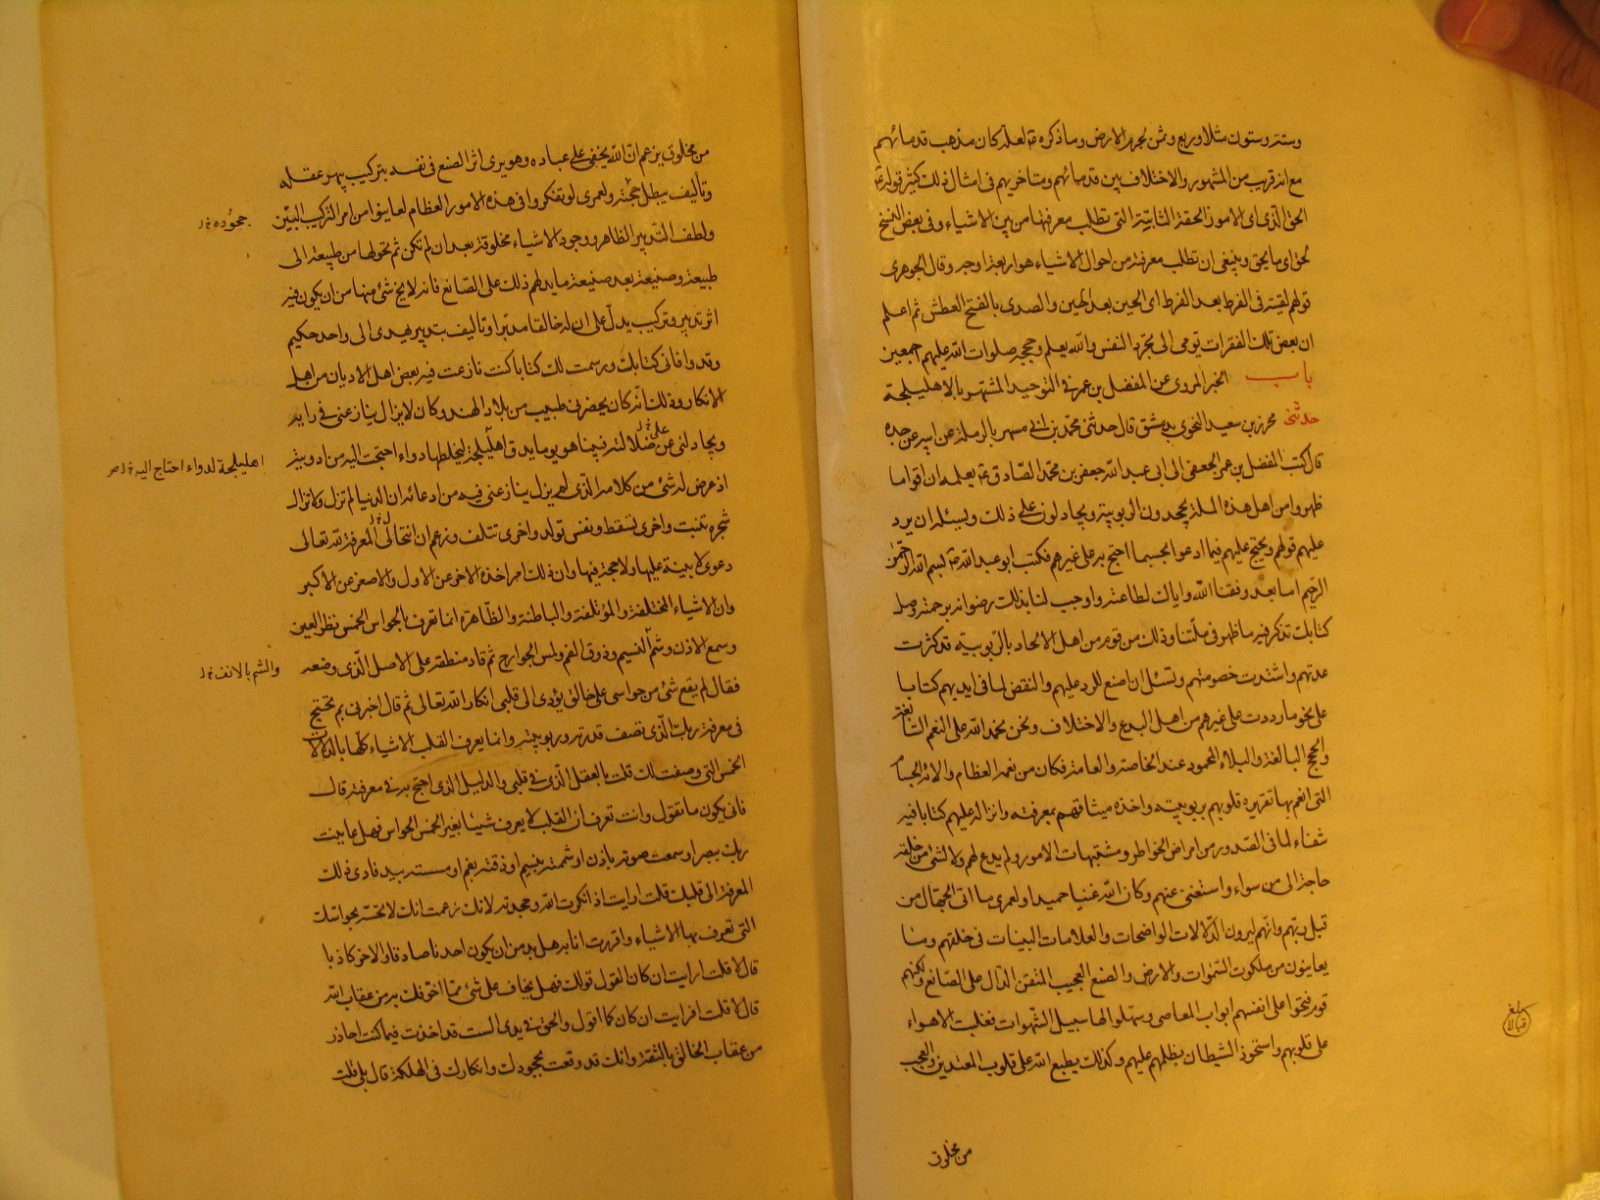 وستة وستون مثلا وربع وثمن لجرم الارض وما ذكره ع لعله كان مذهب قدمائهم
مع انه قريب من المشهور والاختلاف بين قدمائهم ومتاخريهم فى امثال ذلك كثير قوله ع
الحق الذى اى الامور الحقة الثابتة التى تطلب معرفتها من بين الاشياء وفى بعض النسخ
لحق اى ما يحق وينبغى ان تطلب معرفته من احوال الاشياء هو اربعة اوجه وقال الجوهرى
قولهم لقيته فى الفرط بعد الفرط اى الحين بعد الحين والصدى بالفتح العطش ثم اعلم
ان بعض تلك الفقرات تومى الى تجرد النفس والله يعلم وحججه صلوات الله عليهم اجمعين
باب الخبر المروى عن المفضل بن عمر فى التوحيد المشتهر بالاهليلجة
حدثنى محرز بن سعيد النحوى بدمشق قال حدثنى محمد بن ابى مسهر بالرملة عن ابيه عن جده
قال كتب المفضل بن عمر الجعفى الى ابى عبد الله جعفر بن محمد الصادق ع يعلمه ان اقواما
ظهروا من اهل هذه الملة يجحدون الربوبية ويجادلون على ذلك ويسئله ان يرد
عليهم قولهم ويحتج عليهم فيما ادعوا بحسب ما احتج به على غيرهم فكتب ابو عبد الله ع بسم الله الرحمن
الرحيم اما بعد وفقنا الله واياك لطاعته واوجب لنا بذلك رضوانه برحمته وصل
كتابك تذكر فيه ما ظهر فى ملتنا وذلك من قوم من اهل الالحاد بالربوبية قد كثرت
عدتهم واشتدت خصومتهم وتسئل ان اصنع للرد عليهم والنقض لما فى ايديهم كتابا
على نحو ما رددت على غيرهم من اهل البدع والاختلاف ونحن نحمد الله على النعم السابغة
والحجج البالغة والبلاء المحمود عند الخاصة والعامة فكان من نعمه العظام والائه الجسام
التى انعم بها تقريره قلوبهم بربوبيته واخذه ميثاقهم بمعرفته وانزاله عليهم كتابا فيه
شفاء لما فى الصدور من امراض الخواطر ومشتبهات الامور ولم يدع لهم ولا لشئ من خلقه
حاجة الى من سواه واستغنى عنهم وكان الله غنيا حميدا ولعمرى ما اتى الجهال من
قبل ربهم وانهم ليرون الدلالات الواضحات والعلامات البينات فى خلقهم وما
يعاينون من ملكوت السموات والارض والصنع العجيب المتقن الدال على الصانع ولكنهم
قوم فتحوا على انفسهم ابواب المعاصى وسهلوا لها سبيل الشهوات فغلبت الاهواء
على قلوبهم واستحوذ الشيطان بظلمهم عليهم وكذلك يطبع الله على قلوب المعتدين والعجب
من مخلوق
بلغ
قبالا
من مخلوق يزعم ان الله يخفى على عباده وهو يرى اثر الصنع فى نفسه بتركيب يبهر عقله
وتأليف يبطل حجته ولعمرى لو تفكروا فى هذه الامور العظام لعاينوا من امر التركيب البين
جحوده
ولطف التدبير الظاهر ووجود الاشياء مخلوقة بعد ان لم تكن ثم تحولها من طبيعة الى
طبيعة وصنيعة بعد صنيعة ما يدلهم ذلك على الصانع فانه لا يخ شئ منها من ان يكون فيه
اثر تدبير وتركيب يدل على ان له خالقا مدبرا وتاليف بتدبير يهدى الى واحد حكيم
وقد وافانى كتابك ورسمت لك كتابا كنت نازعت فيه بعض اهل الاديان من اهل
الانكار وذلك انه كان يحضرنى طبيب من بلاد الهند وكان لا يزال ينازعنى فى رايه
ويجادلنى عن ضلالته فبينا هو يوما يدق اهليلجة ليخلطها دواء احتجت اليه من ادويته
على
اهليلجة لدواء احتاج اليه
اذ عرض له شئ من كلامه الذى لم يزل ينازعنى فيه من ادعائه ان الدنيا لم تزل ولا تزال
شجرة تنبت واخرى تسقط ونفس تولد واخرى تتلف وزعم ان انتحالى المعرفة لله تعالى
دعوى لا بينة عليها ولا حجة فيها وان ذلك امر اخذه الاخر عن الاول والاصغر عن الاكبر
وان الاشياء المختلفة والمؤتلفة والباطنة والظاهرة انما تعرف بالحواس الخمس نظر العين
وسمع الاذن وشم النسيم وذوق الفم ولمس الجوارح ثم قاد منطقه على الاصل الذى وضعه
والشم بالانف
فقال لم يقع شئ من حواسى على خالق يؤدى الى قلبى انكار الله تعالى ثم قال اخبرنى بم تحتج
فى معرفة ربك الذى تصف قدرته وربوبيته وانما يعرف القلب الاشياء كلها بالدلالات
الخمس التى وصفت لك قلت بالعقل الذى فى قلبى والدليل الذى احتج به فى معرفته قال
فانى يكون ما تقول وانت تعرف ان القلب لا يعرف شيئا بغير الخمس الحواس فهل عاينت
ربك ببصر او سمعت صوته باذن او شممته بنسيم او ذقته بفم او مسسته بيد فادى ذلك
المعرفة الى قلبك قلت ارايت اذ انكرت الله وجحدته لانك زعمت انك لا تحسه بحواسك
التى تعرف بها الاشياء واقررت انا به هل بد من ان يكون احدنا صادقا والاخر كاذبا
قال لا قلت ارايت ان كان القول قولك فهل يخاف على شئ مما اخوفك به من عقاب الله
قال لا قلت افرايت ان كان كما اقول والحق فى يدى الست قد اخذت فيما كنت احاذر
من عقاب الخالق بالثقة وانك قد وقعت بجحودك وانكارك فى الهلكة قال بلى قلت